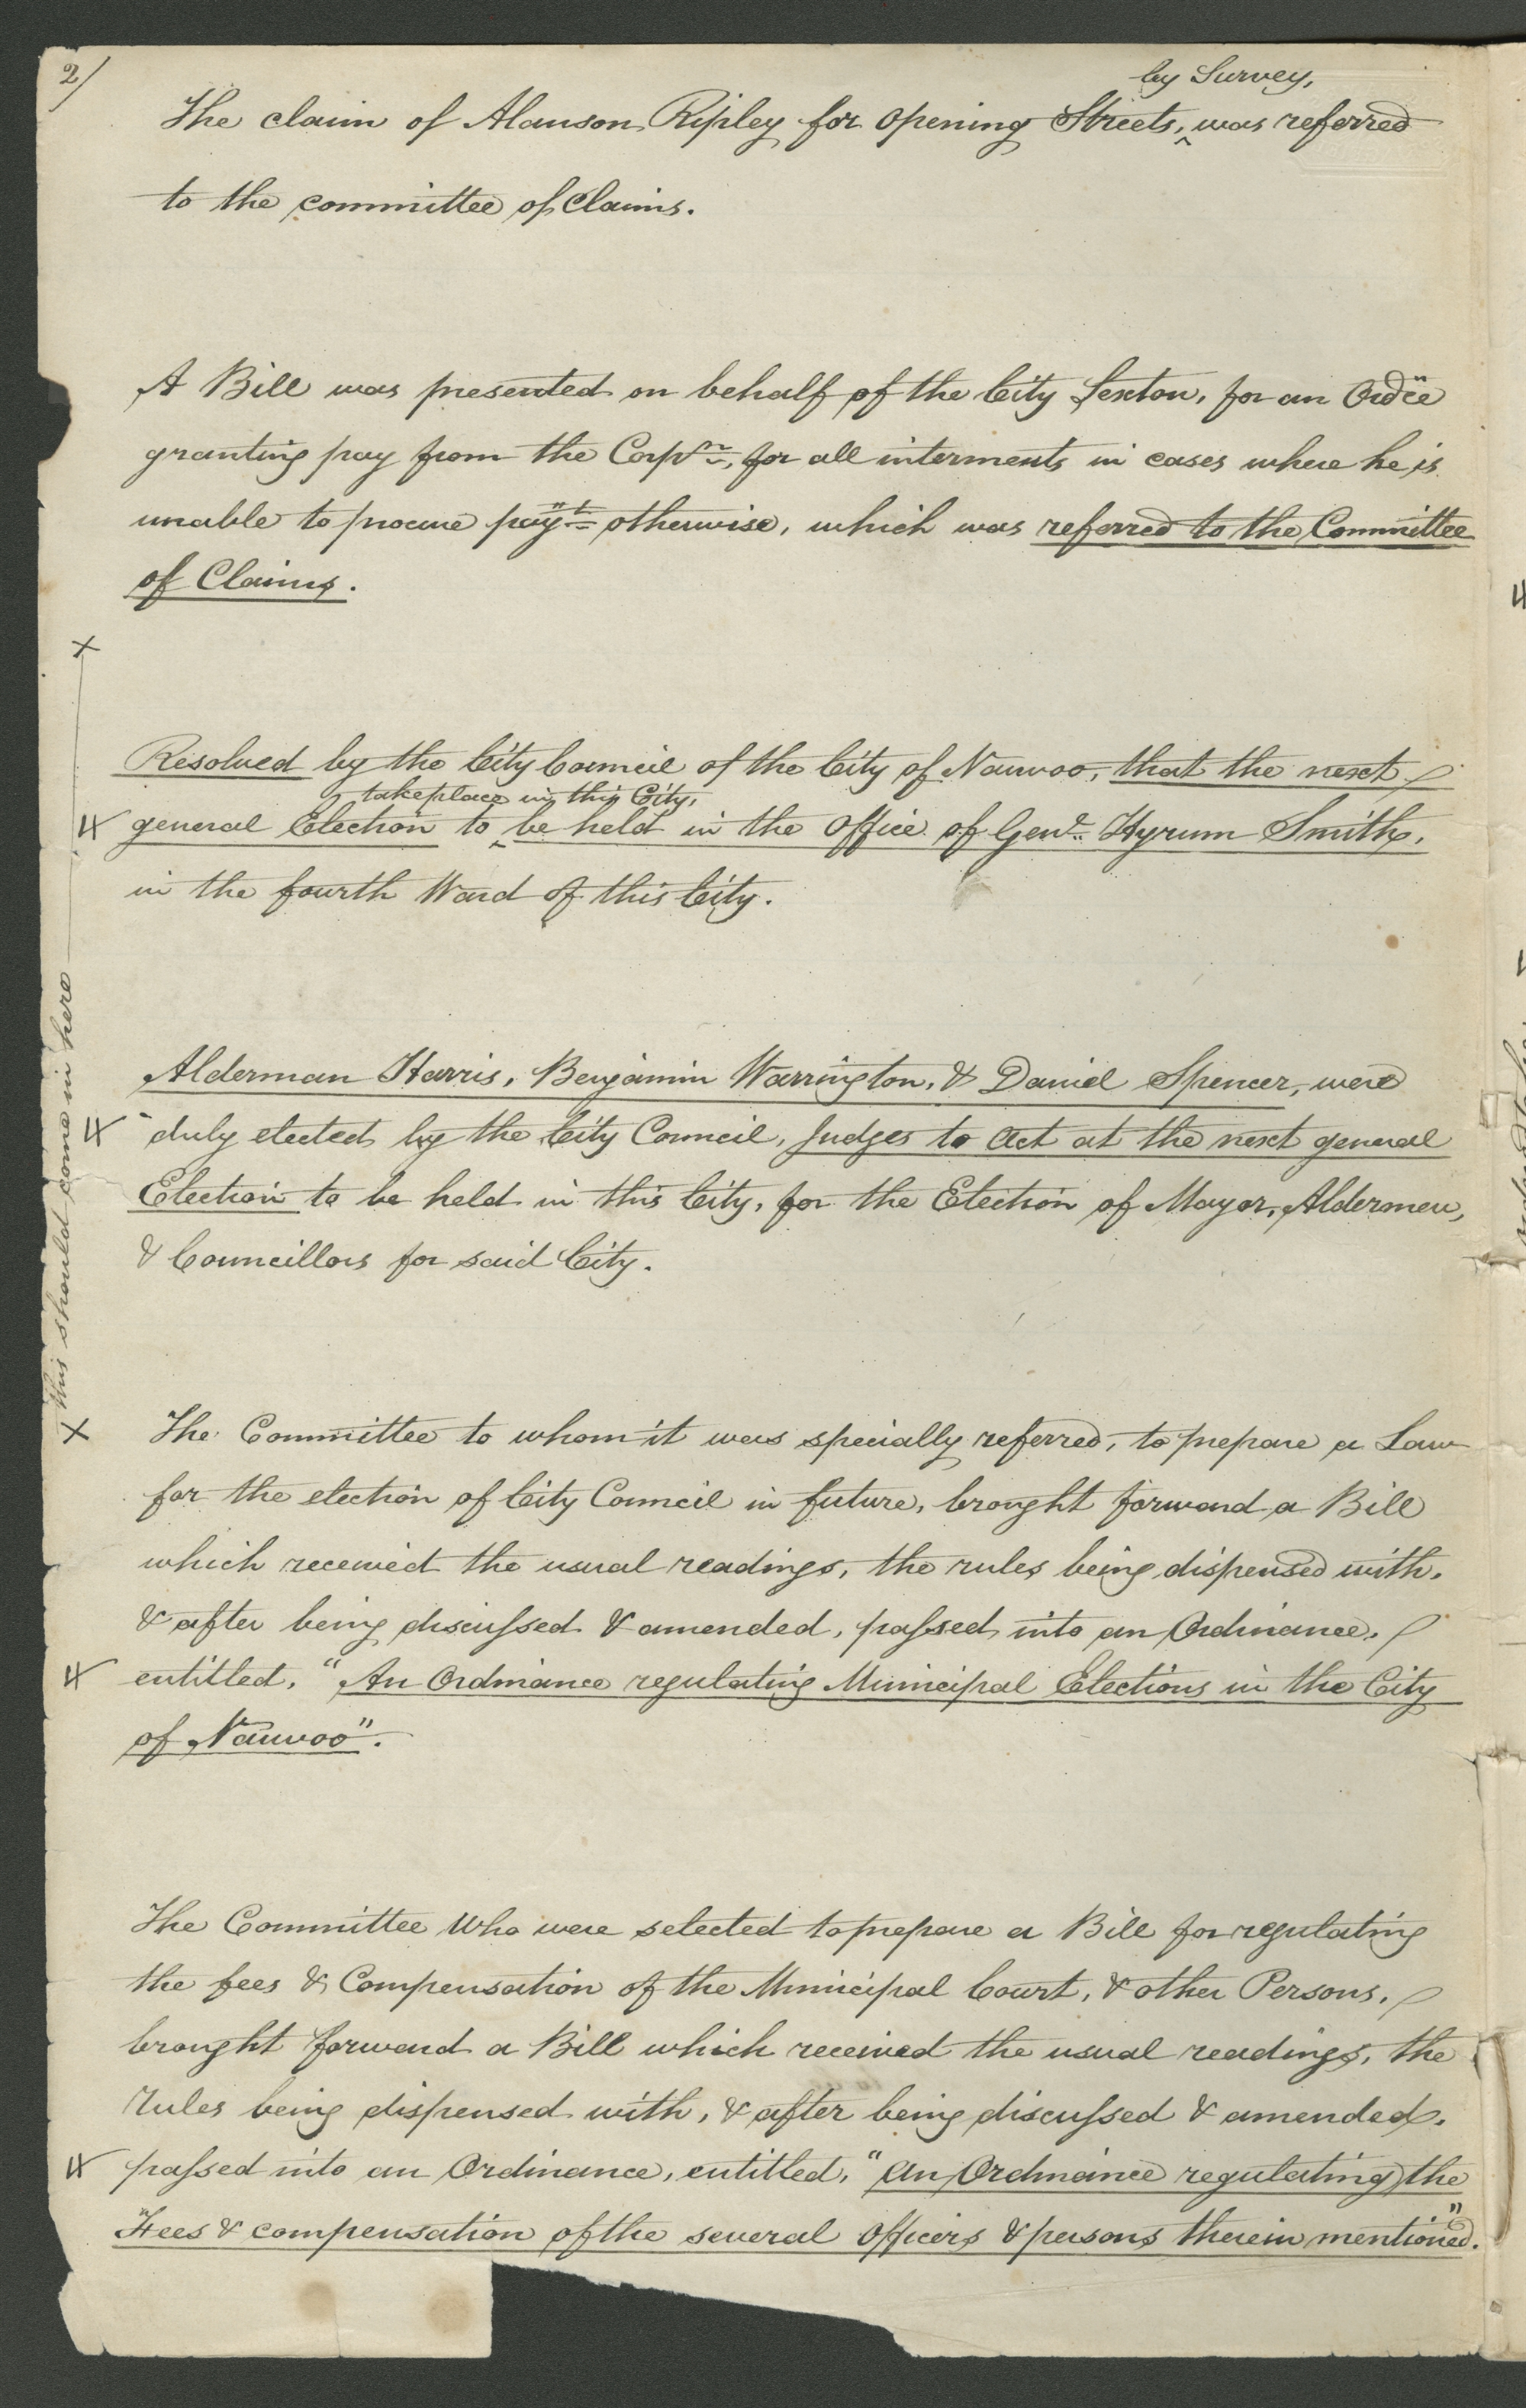 2/
by Survey,
The claim of Alanson Ripley for opening Streets, ^ was referred
to the committee of Claims.
A Bill was presented on behalf of the City Sexton, for an Ordce
granting pay from the Corpn, for all interments in cases where he is
unable to procure payt otherwise, which was referred to the Committee
of Claims.
Resolved by the City Council of the City of Nauvoo, that the next
take place in this City,
4 general Election to ^ be held in the Office of Genl Hyrum Smith,
in the fourth Ward of this City.
Alderman Harris, Benjamin Warrington, & Daniel Spencer, were
4 duly elected by the City Council, Judges to Act at the next general
Election to be held in this City, for the Election of Mayor, Aldermen,
& Councillors for said City.
X this should come in here X
The Committee to whom it was specially referred, to prepare a Law
for the election of City Council in future, brought forward a Bill
which received the usual readings, the rules being dispensed with,
& after being discussed & amended, passed into an Ordinance,
4 entitled, "An Ordinance regulating Municipal Elections in the City
of Nauvoo".
The Committee Who were selected to prepare a Bill for regulating
the fees & Compensation of the Municipal Court, & other Persons,
brought forward a Bill which received the usual readings, the
rules being dispensed with, & after being discussed & amended,
4 passed into an Ordinance, entitled, "An Ordinance regulating the
Fees & compensation of the several Officers & persons therein mentioned."